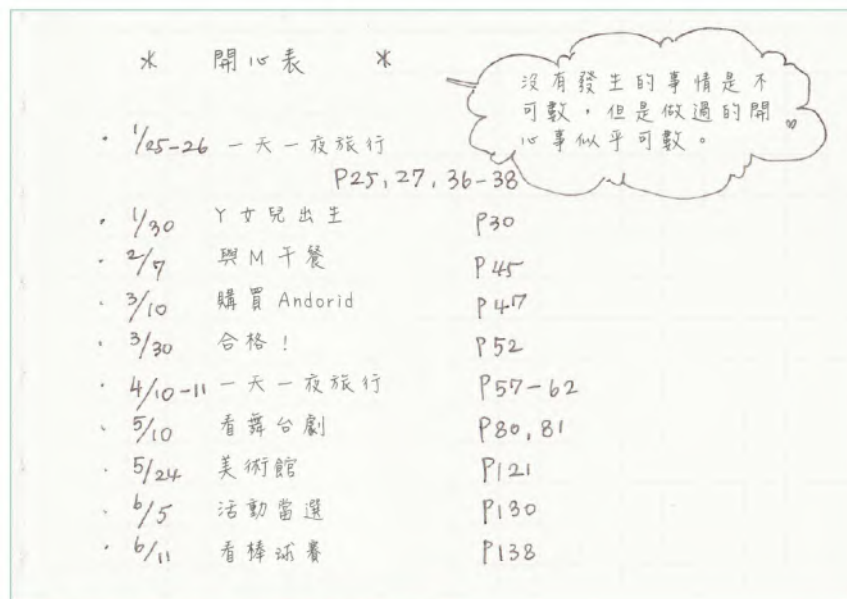 * 開心表 *
沒有發生的事情是不
可數，但是做過的開
心事似乎可數。
• 1/25-26 一天一夜旅行
P25, 27, 36-38
• 1/30 Y女兒出生 P30
• 2/7 與M午餐 P45
• 3/10 購買Andorid P47
• 3/30 合格! P52
• 4/10-11 一天一夜旅行 P57-62
• 5/10 看舞台劇 P80, 81
• 5/24 美術館 P121
• 6/5 活動當選 P130
• 6/11 看棒球賽 P138